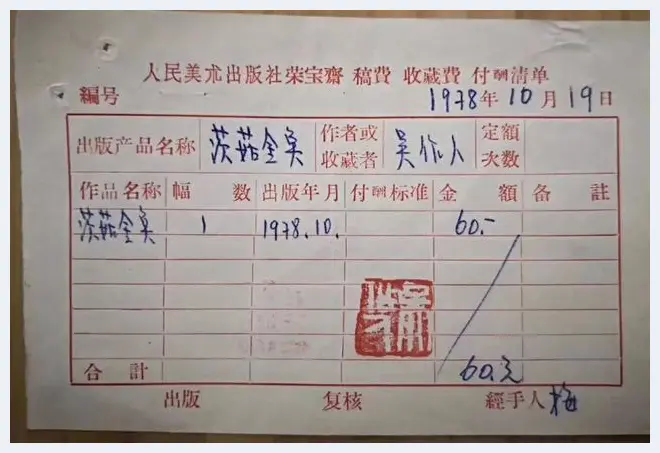 人民美朮出版社荣宝齋 稿費 收蔵費 付酬清单
編号 1978年10月19日
出版产品名称 茨菇金魚 作者或收蔵者 吴作人 定額次数
作品名称 幅数 出版年月 付酬标准 金額 备註
茨菇金魚 1 1978.10. 60.-
合計 60.元
出版 复核 經手人 梅